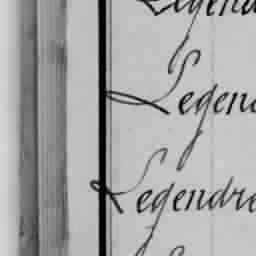 Legend
Legend
Legendre